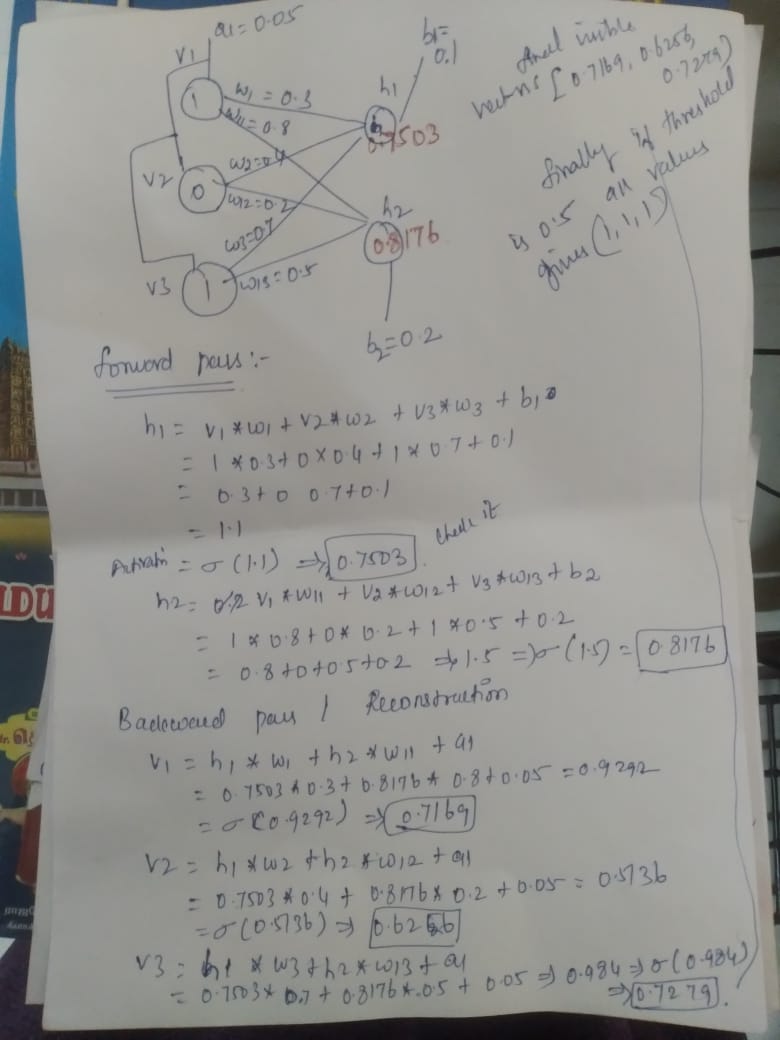 a1 = 0.05
V1
b1 = 0.1
h1
1
w1 = 0.3
w11 = 0.8
0.7503
w2 = 0.4
V2
0
w12 = 0.2
h2
w3 = 0.7
0.8176
V3
1
w13 = 0.5
b2 = 0.2
final visible
vectors [0.7169, 0.6256,
0.7279)
finally if threshold
is 0.5 all values
gives (1, 1, 1)
forward pass :-
h1 = v1 * w1 + v2 * w2 + v3 * w3 + b1
= 1 * 0.3 + 0 x 0.4 + 1 * 0.7 + 0.1
= 0.3 + 0 0.7 + 0.1
= 1.1
= σ (1.1) ⇒ 0.7503. Check it
h2 = v1 * w11 + v2 * w12 + v3 * w13 + b2
= 1 * 0.8 + 0 * 0.2 + 1 * 0.5 + 0.2
= 0.8 + 0 + 0.5 + 0.2 ⇒ 1.5 ⇒ σ (1.5) = 0.8176
Backward pass / Reconstruction
V1 = h1 * w1 + h2 * w11 + a1
= 0.7503 * 0.3 + 0.8176 * 0.8 + 0.05 = 0.9292
= σ (0.9292) ⇒ 0.7169
V2 = h1 * w2 + h2 * w12 + a1
= 0.7503 * 0.4 + 0.8176 * 0.2 + 0.05 = 0.5136
= σ (0.5136) ⇒ 0.6256
V3 = h1 * w3 + h2 * w13 + a1
= 0.7503 * 0.7 + 0.8176 * .05 + 0.05 ⇒ 0.984 ⇒ σ (0.984)
⇒ 0.7279.